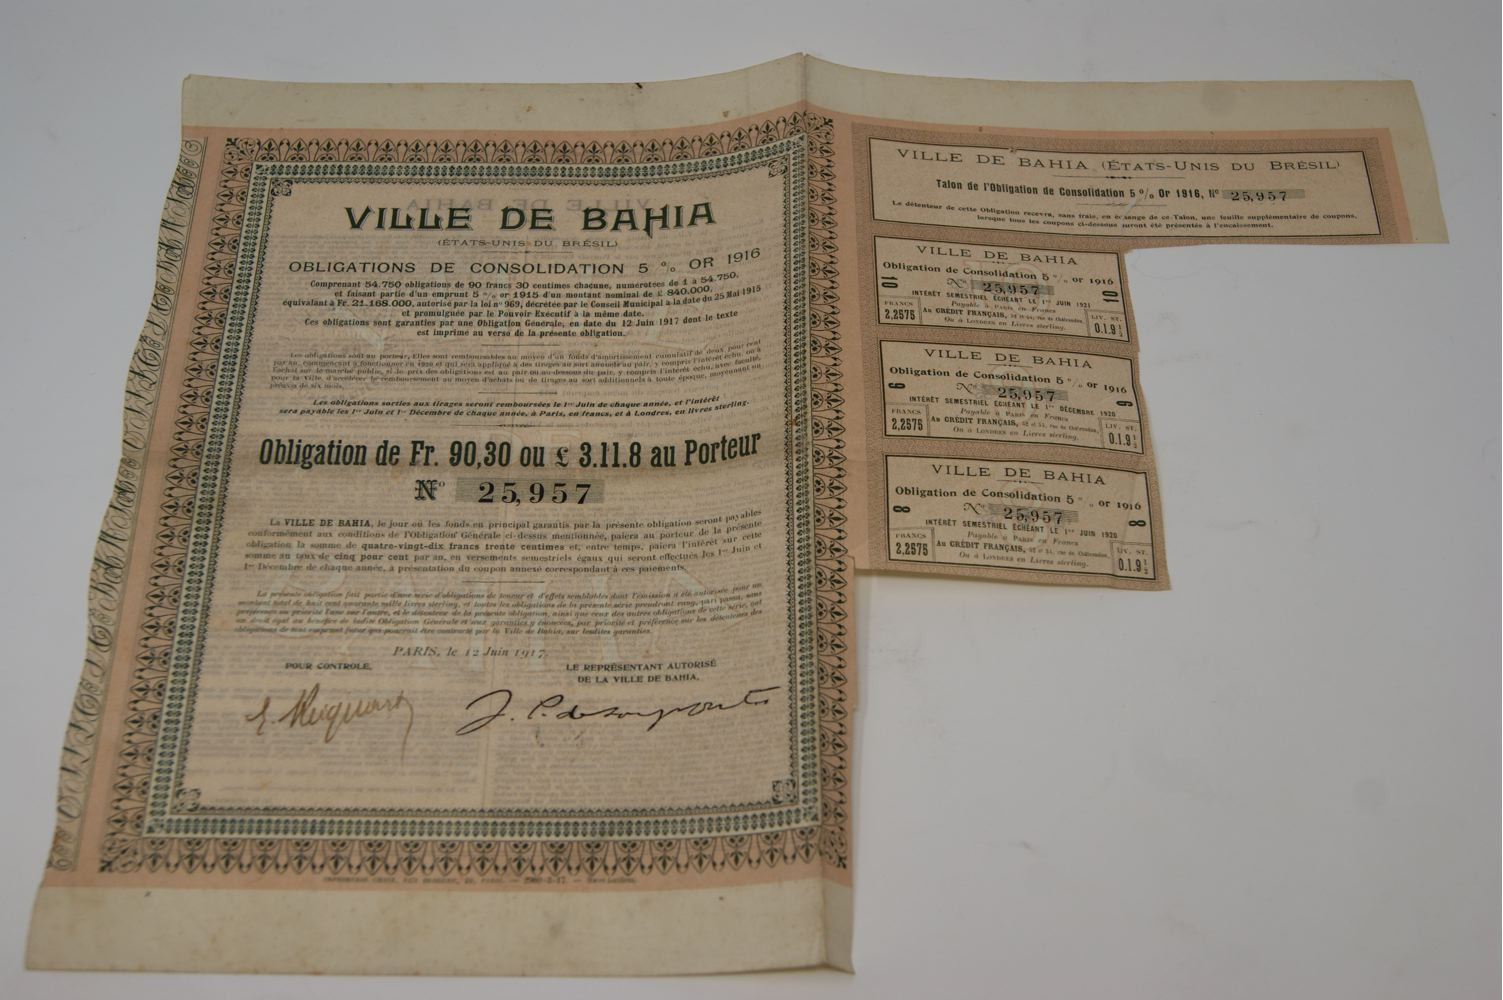 VILLE DE BAHIA
(ÉTATS-UNIS DU BRÉSIL)
OBLIGATIONS DE CONSOLIDATION 5 % OR 1916
Comprenant 54.750 obligations de 90 francs 30 centimes chacune, numérotées de 1 à 54.750,
et faisant partie d'un emprunt 5 % or 1915 d'un montant nominal de £ 840.000,
équivalant à Fr. 21.168.000, autorisé par la loi nº 969, décrétée par le Conseil Municipal à la date du 25 Mai 1915
et promulguée par le Pouvoir Exécutif à la même date.
Ces obligations sont garanties par une Obligation Générale, en date du 12 Juin 1917 dont le texte
est imprimé au verso de la présente obligation.
Les obligations sont au porteur, Elles sont remboursables au moyen d'un fonds d'amortissement cumulatif de deux pour cent
par an, commençant à fonctionner en 1920 et qui sera appliqué à des tirages au sort annuels au pair, y compris l'intérêt échu, ou à
l'achat sur le marché public, si le prix des obligations est au pair ou au-dessous du pair, y compris l'intérêt échu, avec faculté,
pour la Ville, d'accélérer le remboursement au moyen d'achats ou de tirages au sort additionnels à toute époque, moyennant un
préavis de six mois.
Les obligations sorties aux tirages seront remboursées le 1er Juin de chaque année, et l'intérêt
sera payable les 1er Juin et 1er Décembre de chaque année, à Paris, en francs, et à Londres, en livres sterling.
Obligation de Fr. 90,30 ou £ 3.11.8 au Porteur
Nº 25,957
La VILLE DE BAHIA, le jour où les fonds en principal garantis par la présente obligation seront payables
conformément aux conditions de l'Obligation Générale ci-dessus mentionnée, paiera au porteur de la présente
obligation la somme de quatre-vingt-dix francs trente centimes et, entre temps, paiera l'intérêt sur cette
somme au taux de cinq pour cent par an, en versements semestriels égaux qui seront effectués les 1er Juin et
1er Décembre de chaque année, à présentation du coupon annexé correspondant à ces paiements.
La présente obligation fait partie d'une série d'obligations de teneur et d'effets semblables dont l'émission a été autorisée pour un
montant total de huit cent quarante mille livres sterling, et toutes les obligations de la présente série prendront rang, pari passu, sans
préférence ou priorité l'une sur l'autre, et le détenteur de la présente obligation, ainsi que ceux des autres obligations de cette série, ont
un droit égal au bénéfice de ladite Obligation Générale et aux garanties y énoncées, par priorité et préférence sur les détenteurs des
obligations de tout emprunt futur qui pourrait être contracté par la Ville de Bahia, sur lesdites garanties.
PARIS, le 12 Juin 1917.
POUR CONTROLE,
LE REPRÉSENTANT AUTORISÉ
DE LA VILLE DE BAHIA,
VILLE DE BAHIA (ÉTATS-UNIS DU BRÉSIL)
Talon de l'Obligation de Consolidation 5 % Or 1916, Nº 25,957
Le détenteur de cette Obligation recevra, sans frais, en échange de ce Talon, une feuille supplémentaire de coupons,
lorsque tous les coupons ci-dessous auront été présentés à l'encaissement.
VILLE DE BAHIA
Obligation de Consolidation 5 % or 1916
10 Nº 25,957 10
INTÉRÊT SEMESTRIEL ÉCHÉANT LE 1er JUIN 1921
FRANCS 2,2575
Payable à PARIS en Francs
Au CRÉDIT FRANÇAIS,
Ou à LONDRES en Livres sterling.
LIV. ST. 0.1.9½
VILLE DE BAHIA
Obligation de Consolidation 5 % or 1916
9 Nº 25,957 9
INTÉRÊT SEMESTRIEL ÉCHÉANT LE 1er DÉCEMBRE 1920
FRANCS 2,2575
Payable à PARIS en Francs
Au CRÉDIT FRANÇAIS,
Ou à LONDRES en Livres sterling.
LIV. ST. 0.1.9½
VILLE DE BAHIA
Obligation de Consolidation 5 % or 1916
8 Nº 25,957 8
INTÉRÊT SEMESTRIEL ÉCHÉANT LE 1er JUIN 1920
FRANCS 2,2575
Payable à PARIS en Francs
Au CRÉDIT FRANÇAIS,
Ou à LONDRES en Livres sterling.
LIV. ST. 0.1.9½